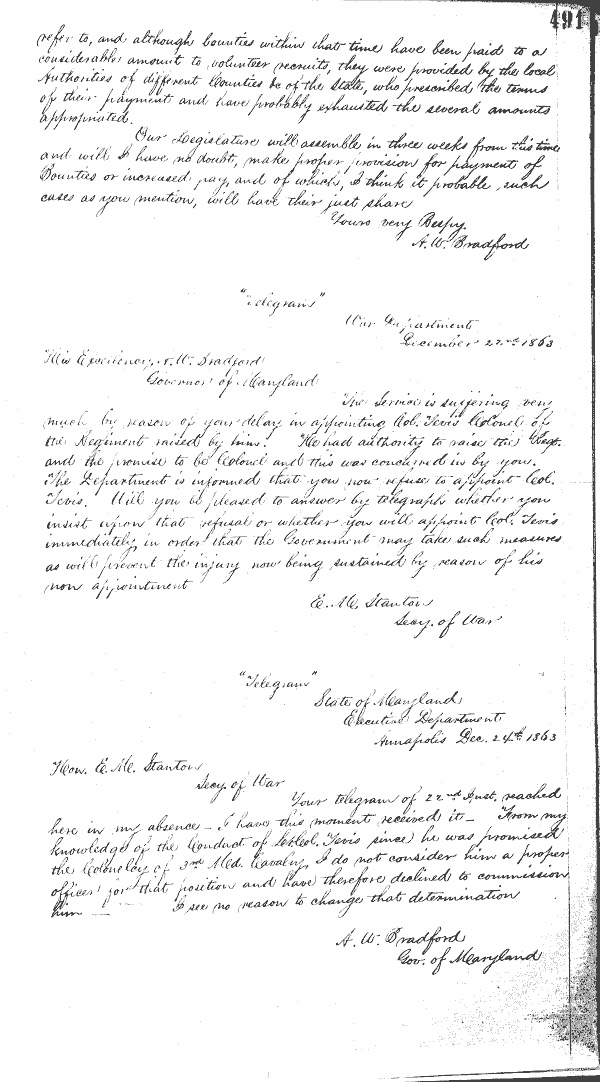 491
refer to, and although bounties within that time have been paid to a
considerable amount to volunteer recruits, they were provided by the local
Authorities of different Counties &c of the State, who prescribed the terms
of their payment and have probably exhausted the several amounts
appropriated.
Our Legislature will assemble in three weeks from this time
and will I have no doubt, make proper provision for payment of
Bounties or increased pay, and of which, I think it probable, such
cases as you mention, will have their just share
Yours very Respy.
A. W. Bradford
"Telegram"
War Department
December 22nd 1863
His Excellency, A. W. Bradford
Governor of Maryland
The Service is suffering very
much by reason of your delay in appointing Col. Tevis Colonel of
the Regiment raised by him. He had authority to raise the Regt.
and the promise to be Colonel and this was concurred in by you.
The Department is informed that you now refuse to appoint Col.
Tevis. Will you be pleased to answer by telegraph whether you
insist upon that refusal or whether you will appoint Col. Tevis
immediately, in order that the Government may take such measures
as will prevent the injury now being sustained by reason of his
non appointment
E. M. Stanton
Secy. of War
"Telegram"
State of Maryland
Executive Department
Annapolis Dec. 24th 1863
Hon. E. M. Stanton
Secy. of War
Your telegram of 22nd Inst. reached
here in my absence – I have this moment received it – From my
knowledge of the Conduct of Lt Col. Tevis since he was promised
the Colonelcy of 3rd Md. Cavalry, I do not consider him a proper
officer for that position and have therefore declined to commission
him — I see no reason to change that determination
A. W. Bradford
Gov. of Maryland